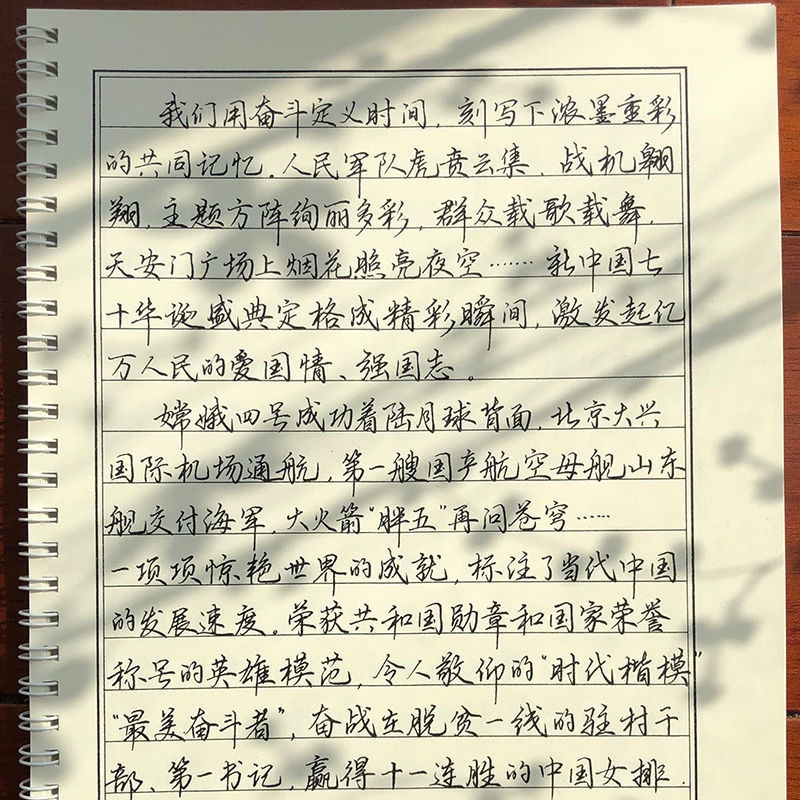 我们用奋斗定义时间，刻写下浓墨重彩
的共同记忆。人民军队虎贲云集，战机翱
翔，主题方阵绚丽多彩，群众载歌载舞，
天安门广场上烟花照亮夜空……新中国七
十华诞盛典定格成精彩瞬间，激发起亿
万人民的爱国情、强国志。
嫦娥四号成功着陆月球背面，北京大兴
国际机场通航，第一艘国产航空母舰山东
舰交付海军，大火箭“胖五”再问苍穹……
一项项惊艳世界的成就，标注了当代中国
的发展速度。荣获共和国勋章和国家荣誉
称号的英雄模范，令人敬仰的“时代楷模”
“最美奋斗者”，奋战在脱贫一线的驻村干
部、第一书记，赢得十一连胜的中国女排，